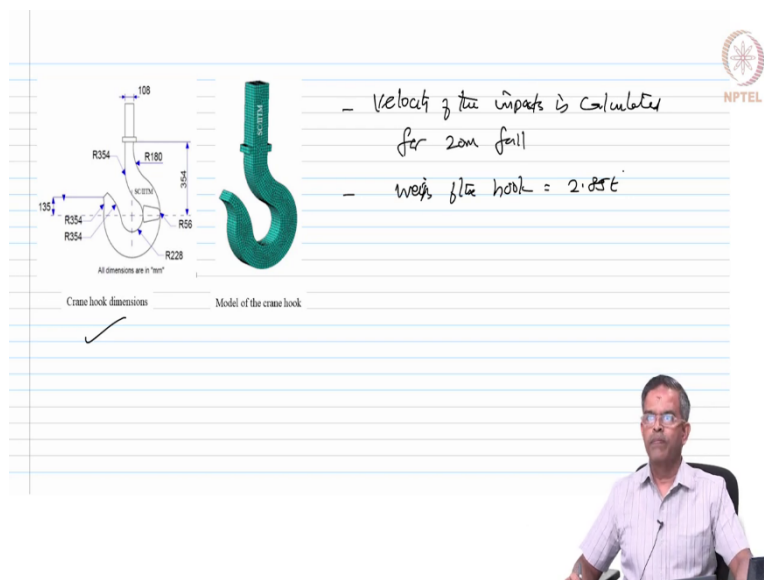 108
R354
R180
354
SC/IITM
135
R354
R354
R56
R228
All dimensions are in "mm"
Crane hook dimensions
SC/IITM
Model of the crane hook
- Velocity of the impact is calculated
for 20m fall
- weight of the hook = 2.85t
NPTEL